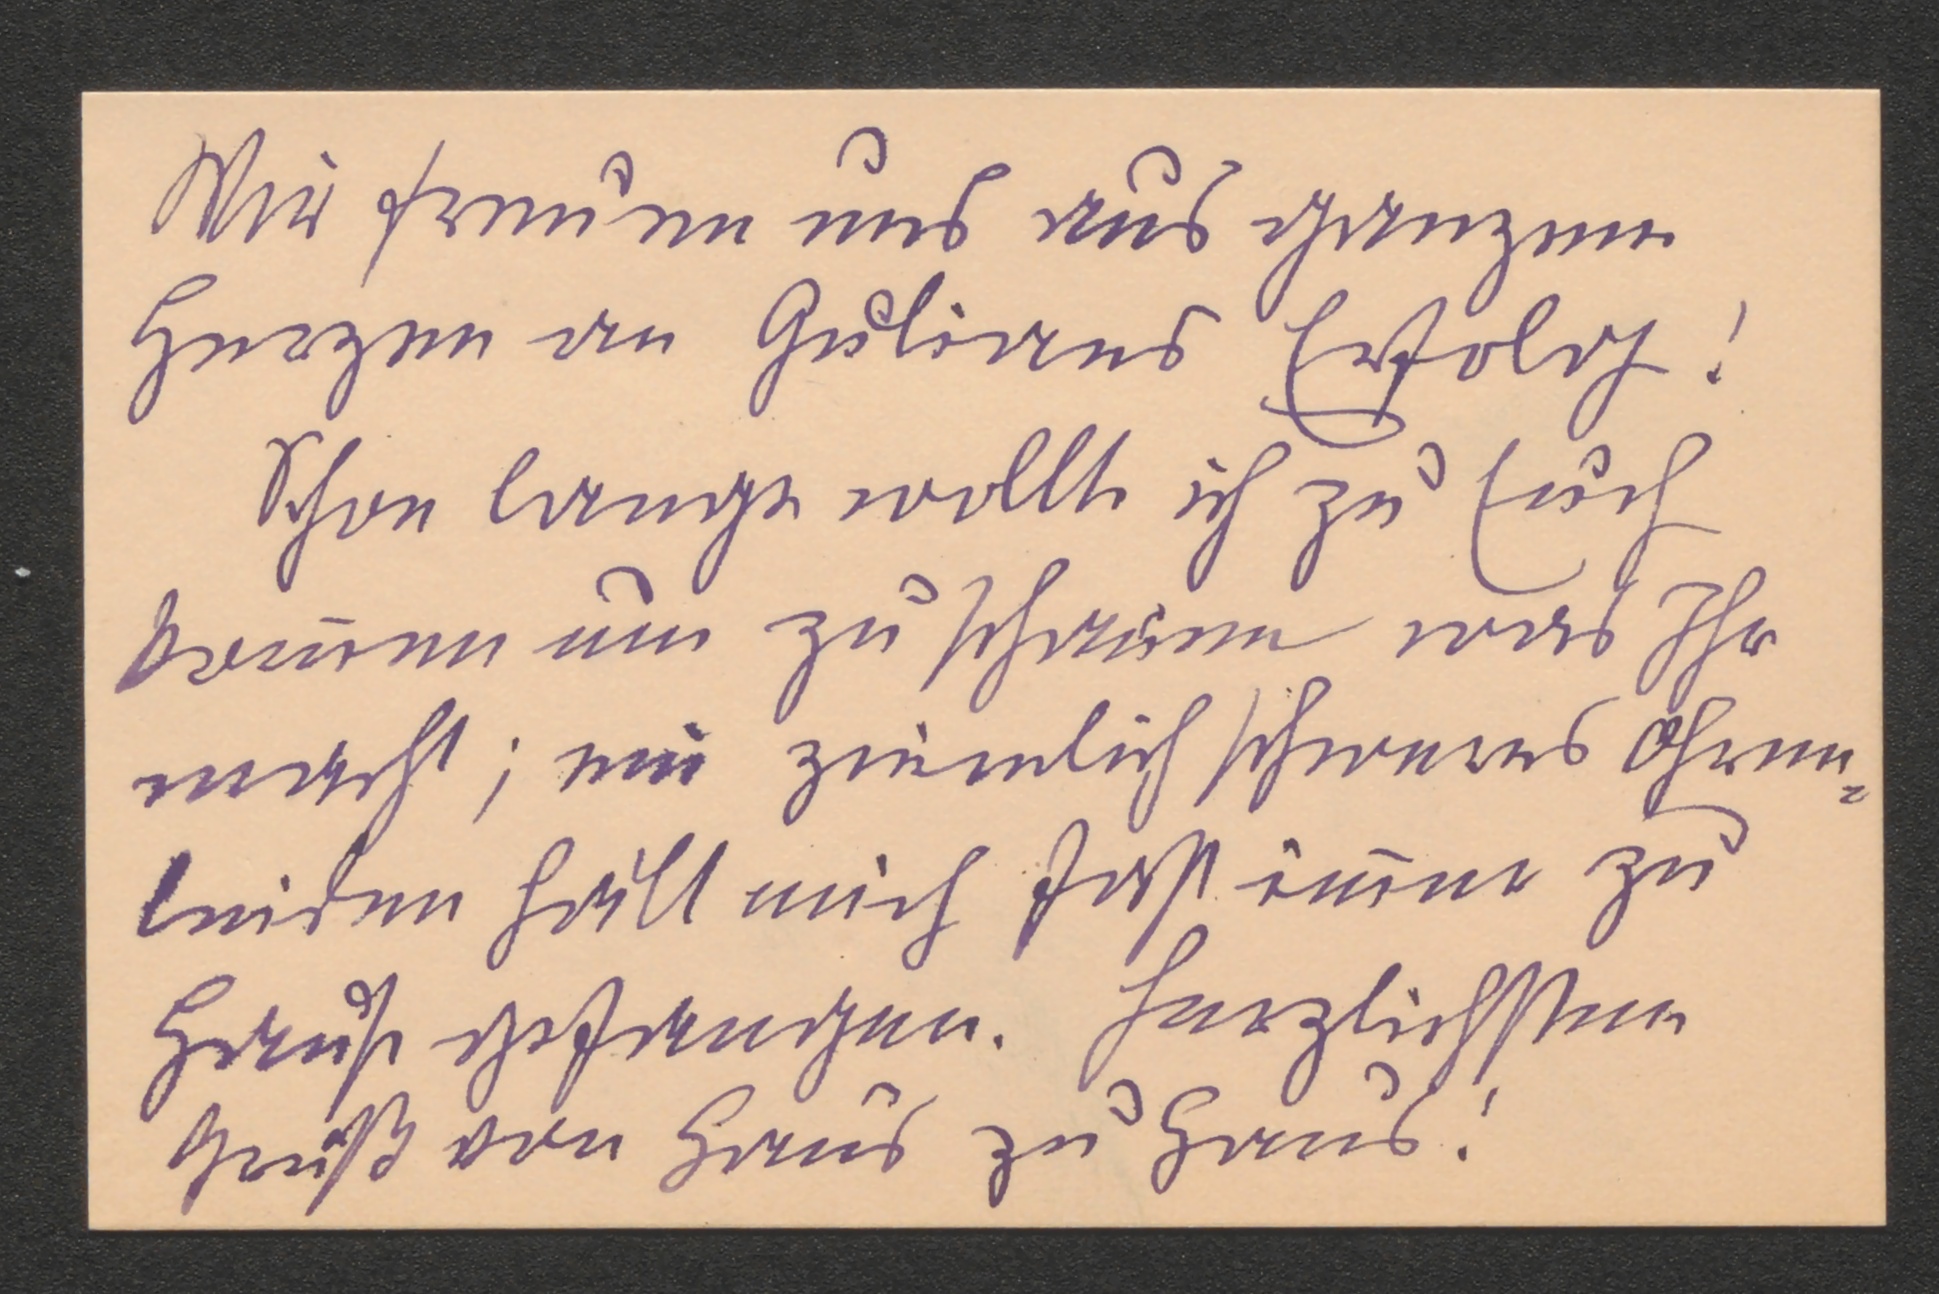 Wir freuen uns aus ganzem
Herzen an Gulians Erfolg!
Schon lange wollte ich zu Euch
kom̅en um zu schauen was Ihr
macht; ein ziemlich schweres Ohren=
leiden hält mich fast im̅er zu
Hause gefangen. Herzlichsten
Gruß von Haus zu Haus!